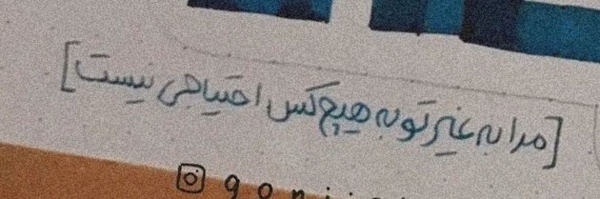 [مرا به غیر تو به هیچ‌کس احتیاجی نیست]